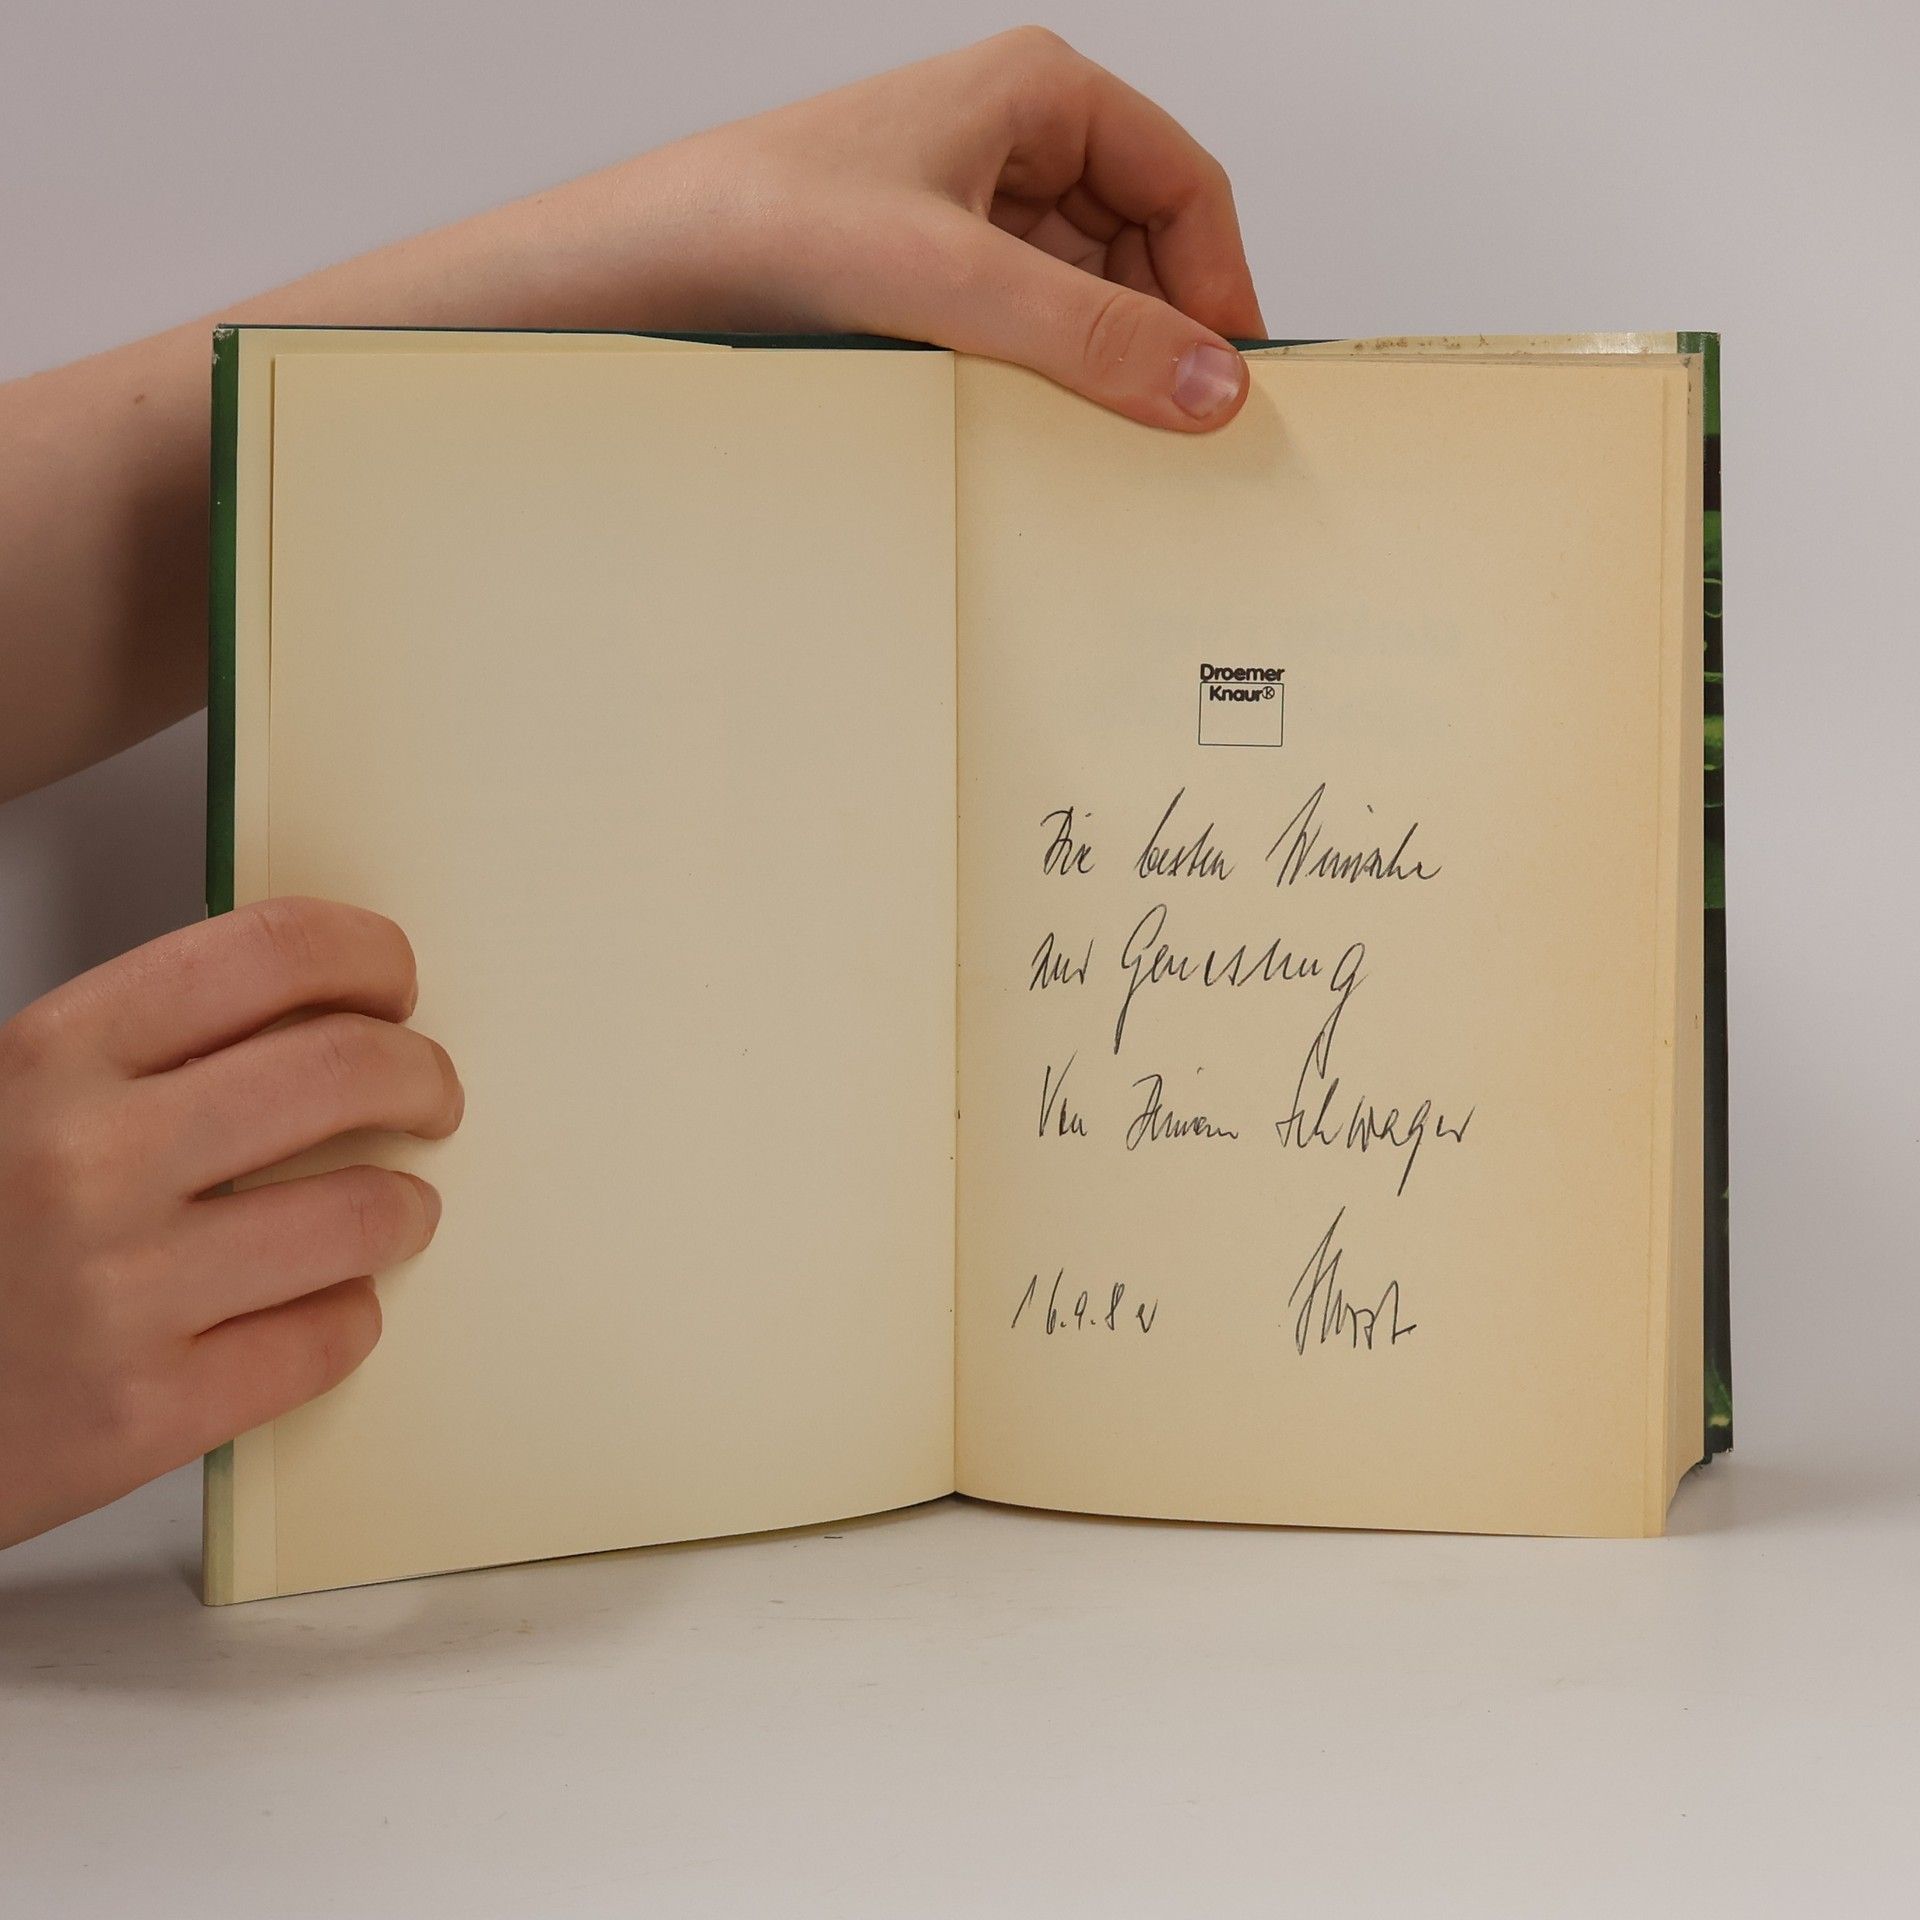 Droemer
Knaur®
Die besten Wünsche
zur Genesung
Von Deinem Schwager
16.9.82 Horst